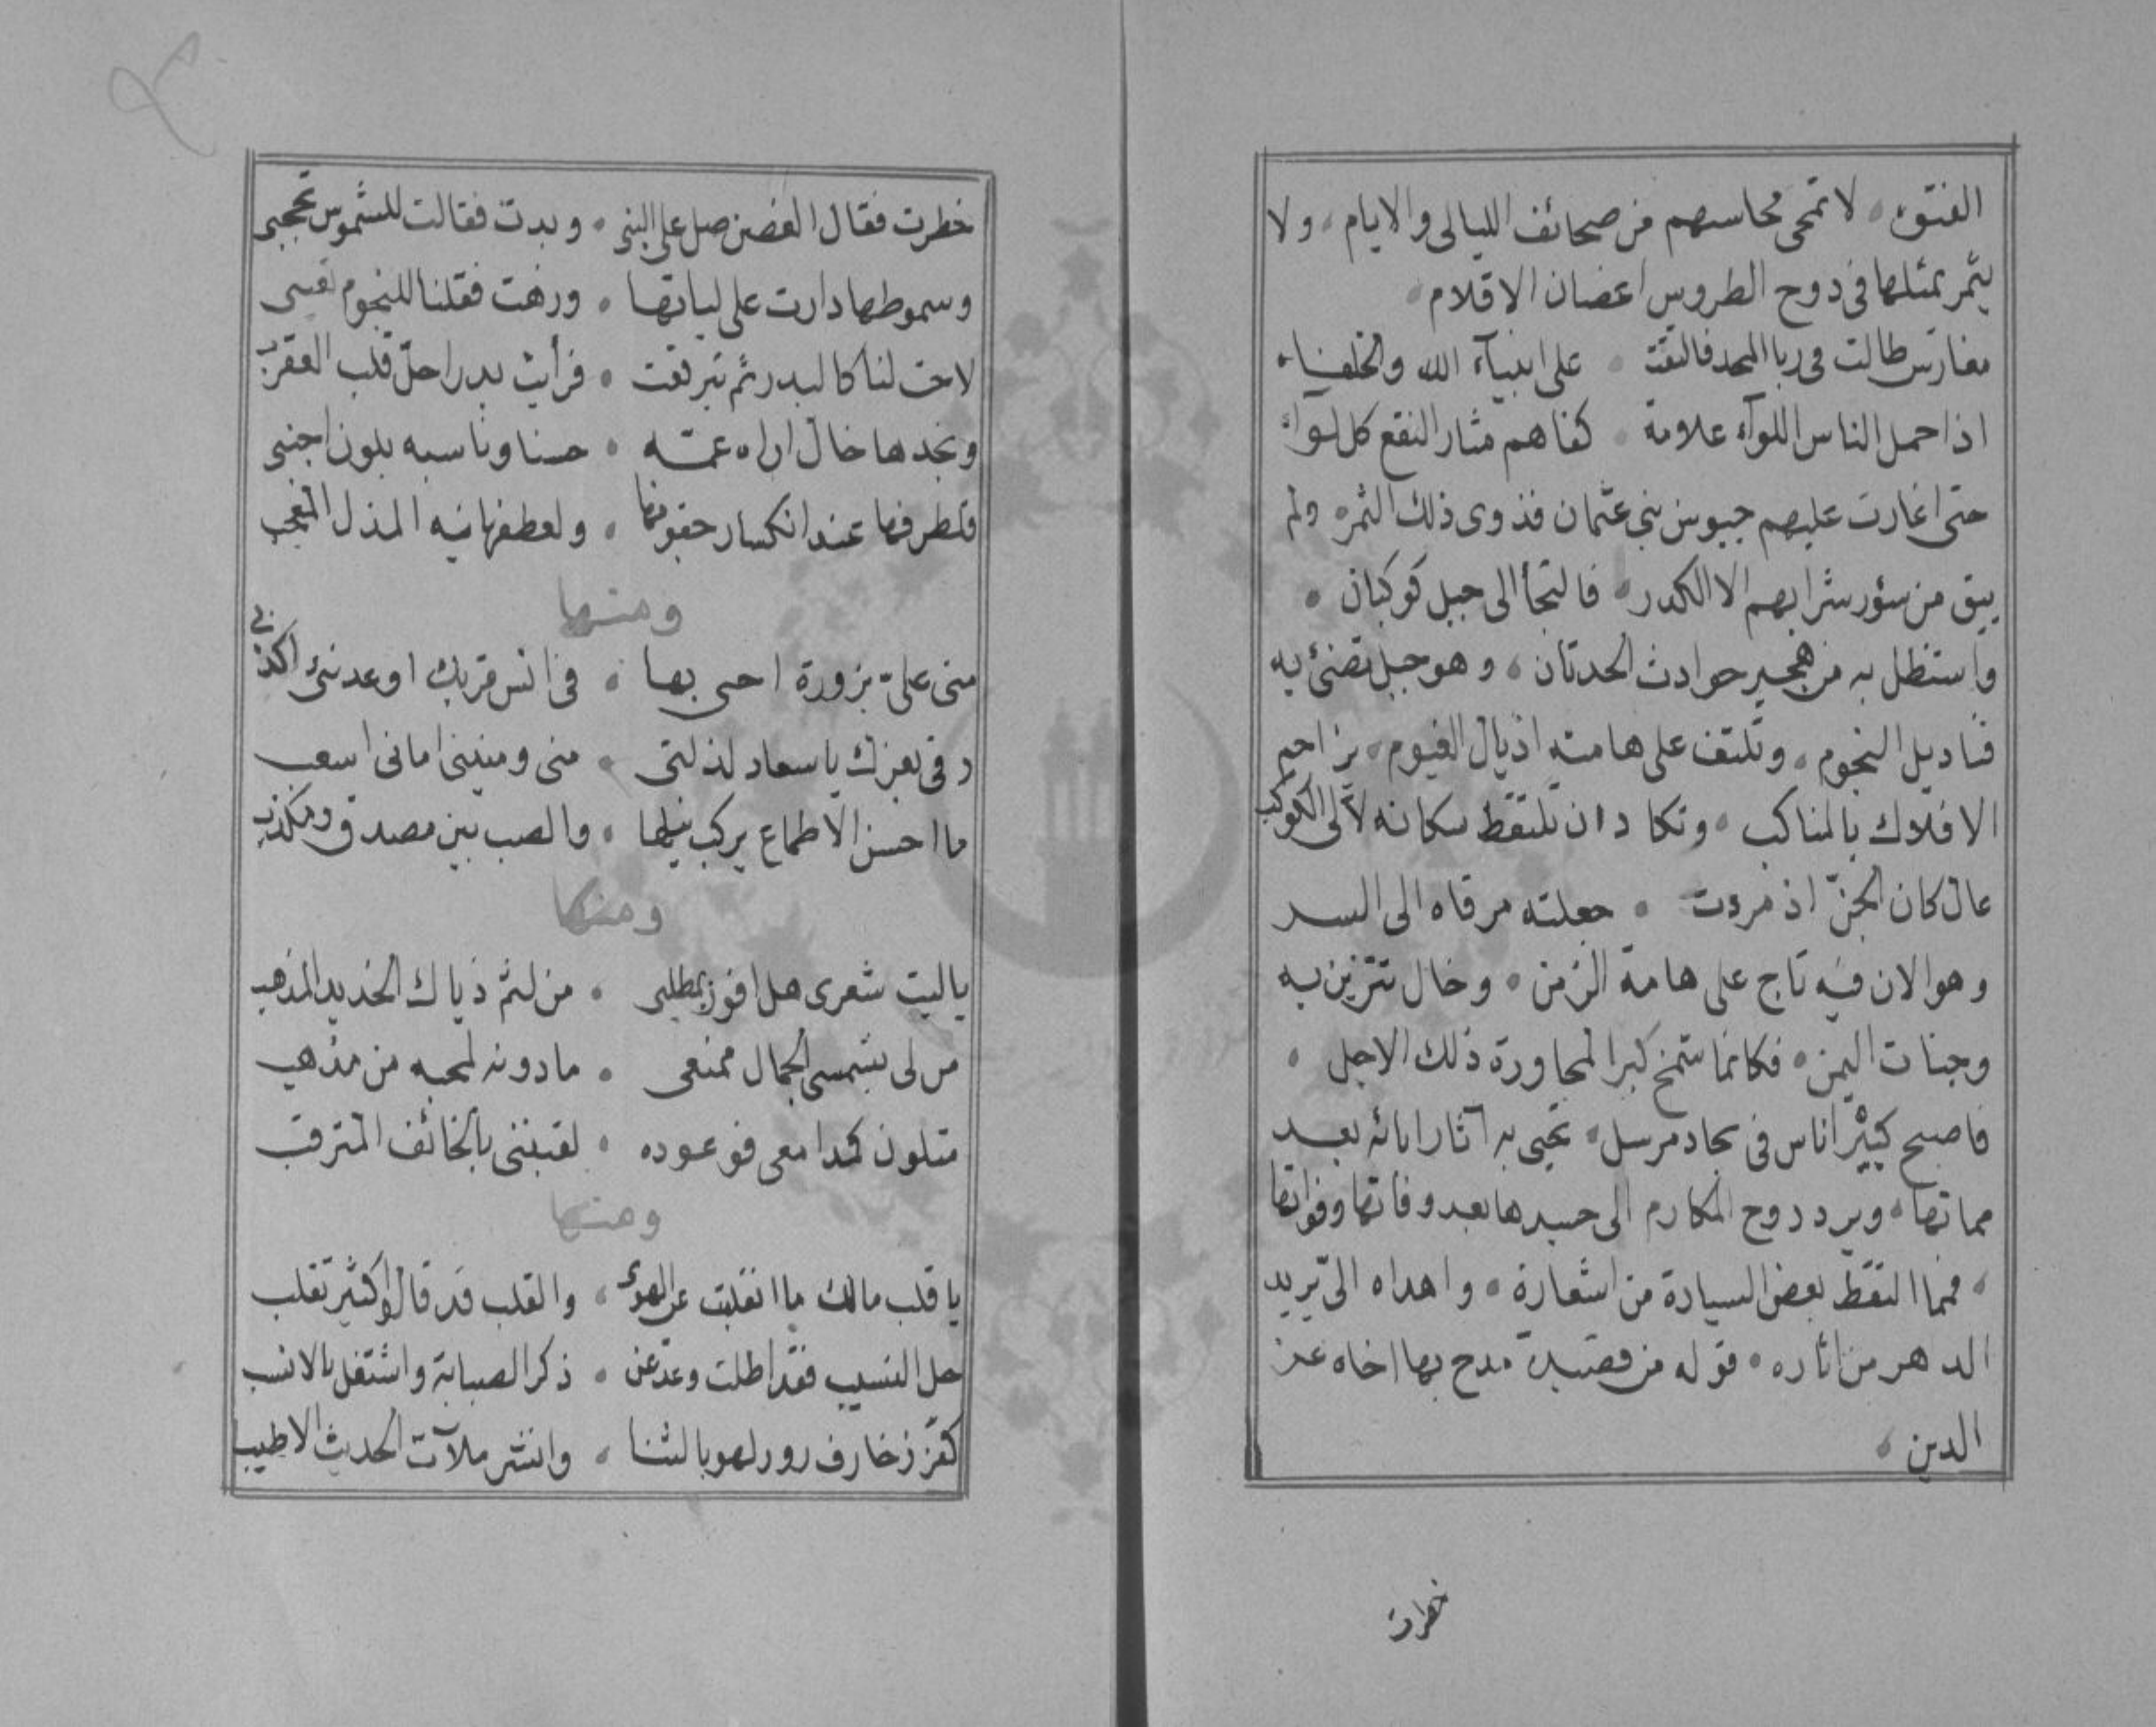 الفتوة • لا تمحى محاسنهم من صحائف الليالى والايام • ولا
يثمر بمثلها فى دوح الطروس اغصان الاقلام •
مغارس طالت فى ربا المجد فالتقت • على انبيآء الله والخلفاء
اذا حمل الناس اللوآء علامة • كفاهم مثار النقع كل لوآء
حتى اغارت عليهم جيوس بنى عثمان فذوى ذلك الثمره ولم
يبق من سؤر شرابهم الا الكدر • فالتجأ الى جبل كوكبان •
واستظل به من هجير حوادث الحدثان • وهو جبل تضئ به
قناديل النجوم • وتلتف على هامته اذيال الغيوم • يزاحم
الافلاك بالمناكب • وتكاد ان تلتقط سكانه لآلى الكواكب
عال كان الجنّ اذ مردت • جعلته مرقاه الى السد
وهو الان فيه تاج على هامة الزمن • وخال تتزين به
وجنات اليمن • فكانما شمخ كبرا لمجاورة ذلك الاجل •
فاصبح كبير اناس فى بجاد مرسل • تحيى به آثار ابائه بعد
مماتها • ويرد روح المكارم الى جسدها بعد وفاتها وفواتها
• فمما التقط بعض السيارة من اشعاره • واهداه الىّ بريد
الدهر من اثاره • قوله من قصيدة مدح بها اخاه عز
الدين •
خطرت
خطرت فقال الغصن صل على النبى • وبدت فقالت للشموس تحجبى
وسموطها دارت على لباتها • وزهت فقلنا للنجوم تغيبى
لاحت لنا كالبدر ثم تبرقعت • فرأيت بدرا حلّ قلب العقرب
وبخدها خال اراه عمته • حسنا وناسبه بلون اجنبى
فلطرفها عند انكسار حقوقها • ولعطفها تيه المذل المعجب
ومنها
منى علىّ بزورة احيى بها • فى انس قربك اوعدنى اكذبى
رقى بعزك يا سعاد لذلتى • منى ومنينى امانى اسعب
ما احسن الاطماع يركب نيلها • والصب بين مصدق ومكذب
ومنها
ياليت شعرى هل افوز بمطلبى • من لثم ذياك الخديد المذهب
من لى بشمسى الجمال ممنعى • مادونه لمحبه من مذهب
متلون كمدامعى فوعوده • لقبننى بالخائف المترقب
ومنها
يا قلب مالك ما انقلبت عن الهوى • والقلب قد قالوا كثير تقلب
حل النسيب فقد اطلت وعد عن • ذكر الصبابة واشتغل بالانسب
زخارف بالثنا • وانشر ملآت الحديث الاطيب